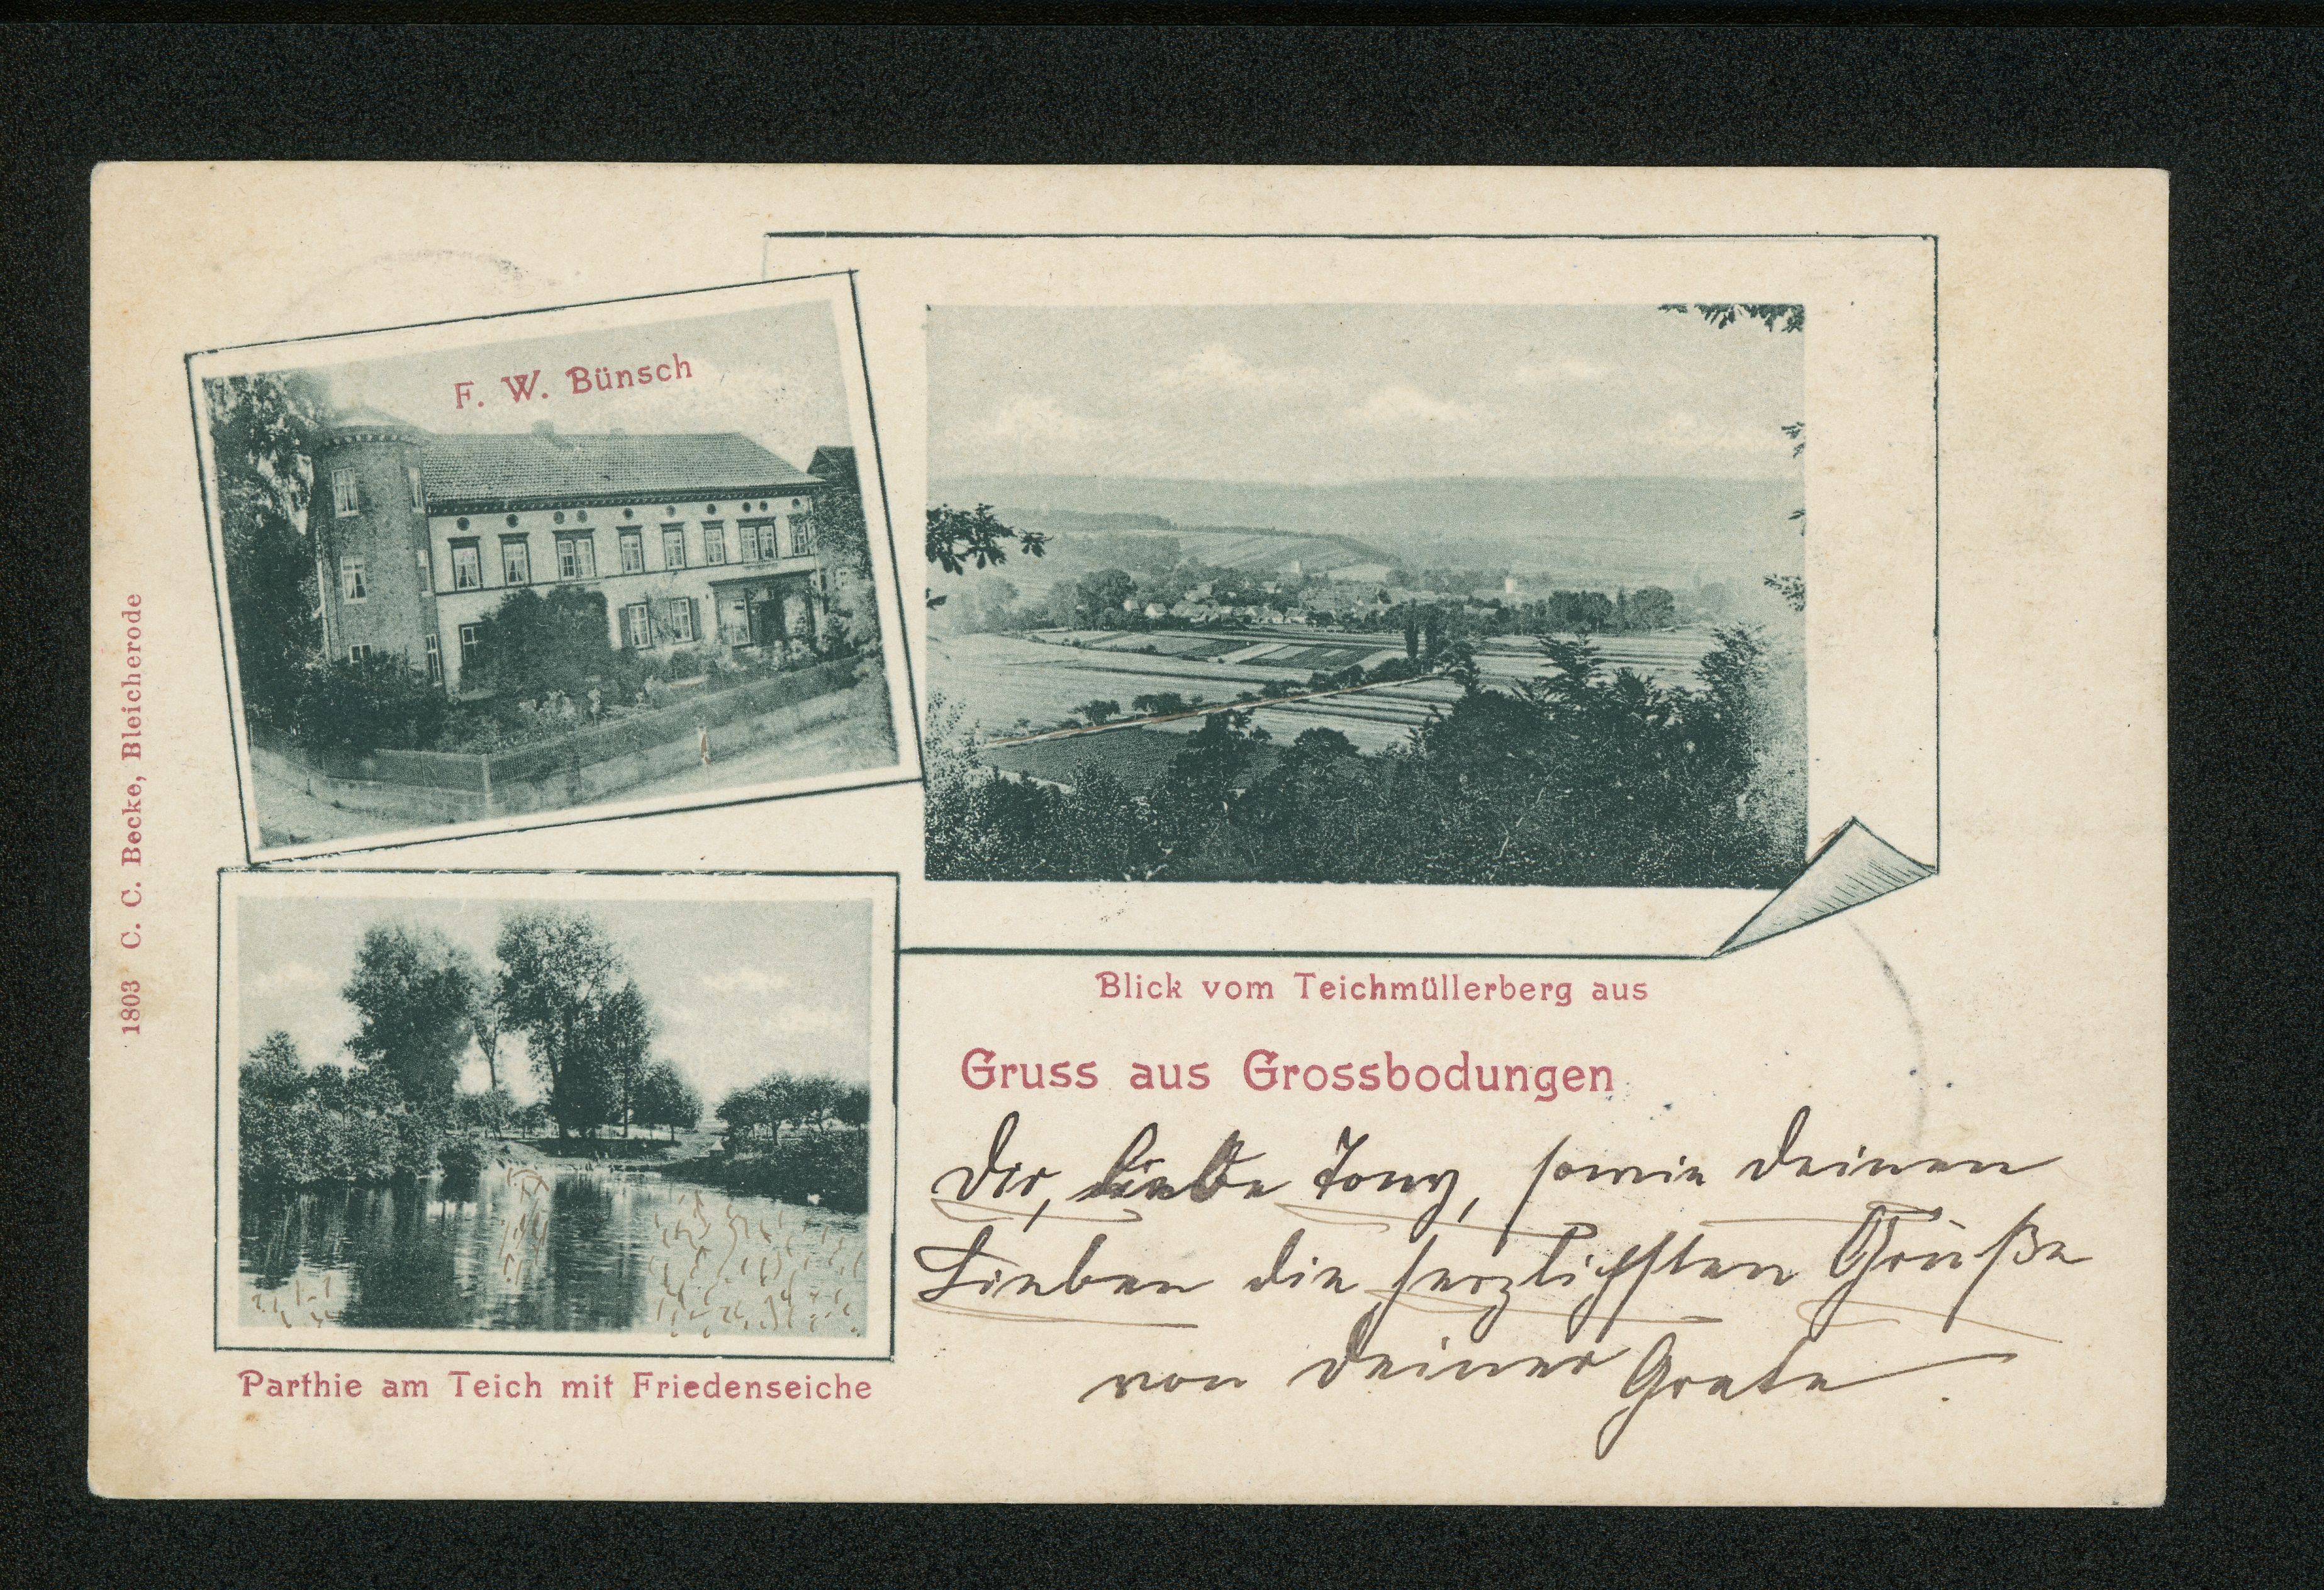 F. W. Bünsch
Blick vom Teichmüllerberg aus
Gruss aus Grossbodungen
Dir, liebe Tony, sowie Deinen
Lieben die herzlichsten Grüße
von Deiner Grete.
Parthie am Teich mit Friedenseiche
1803 C. C. Becke, Bleicherode